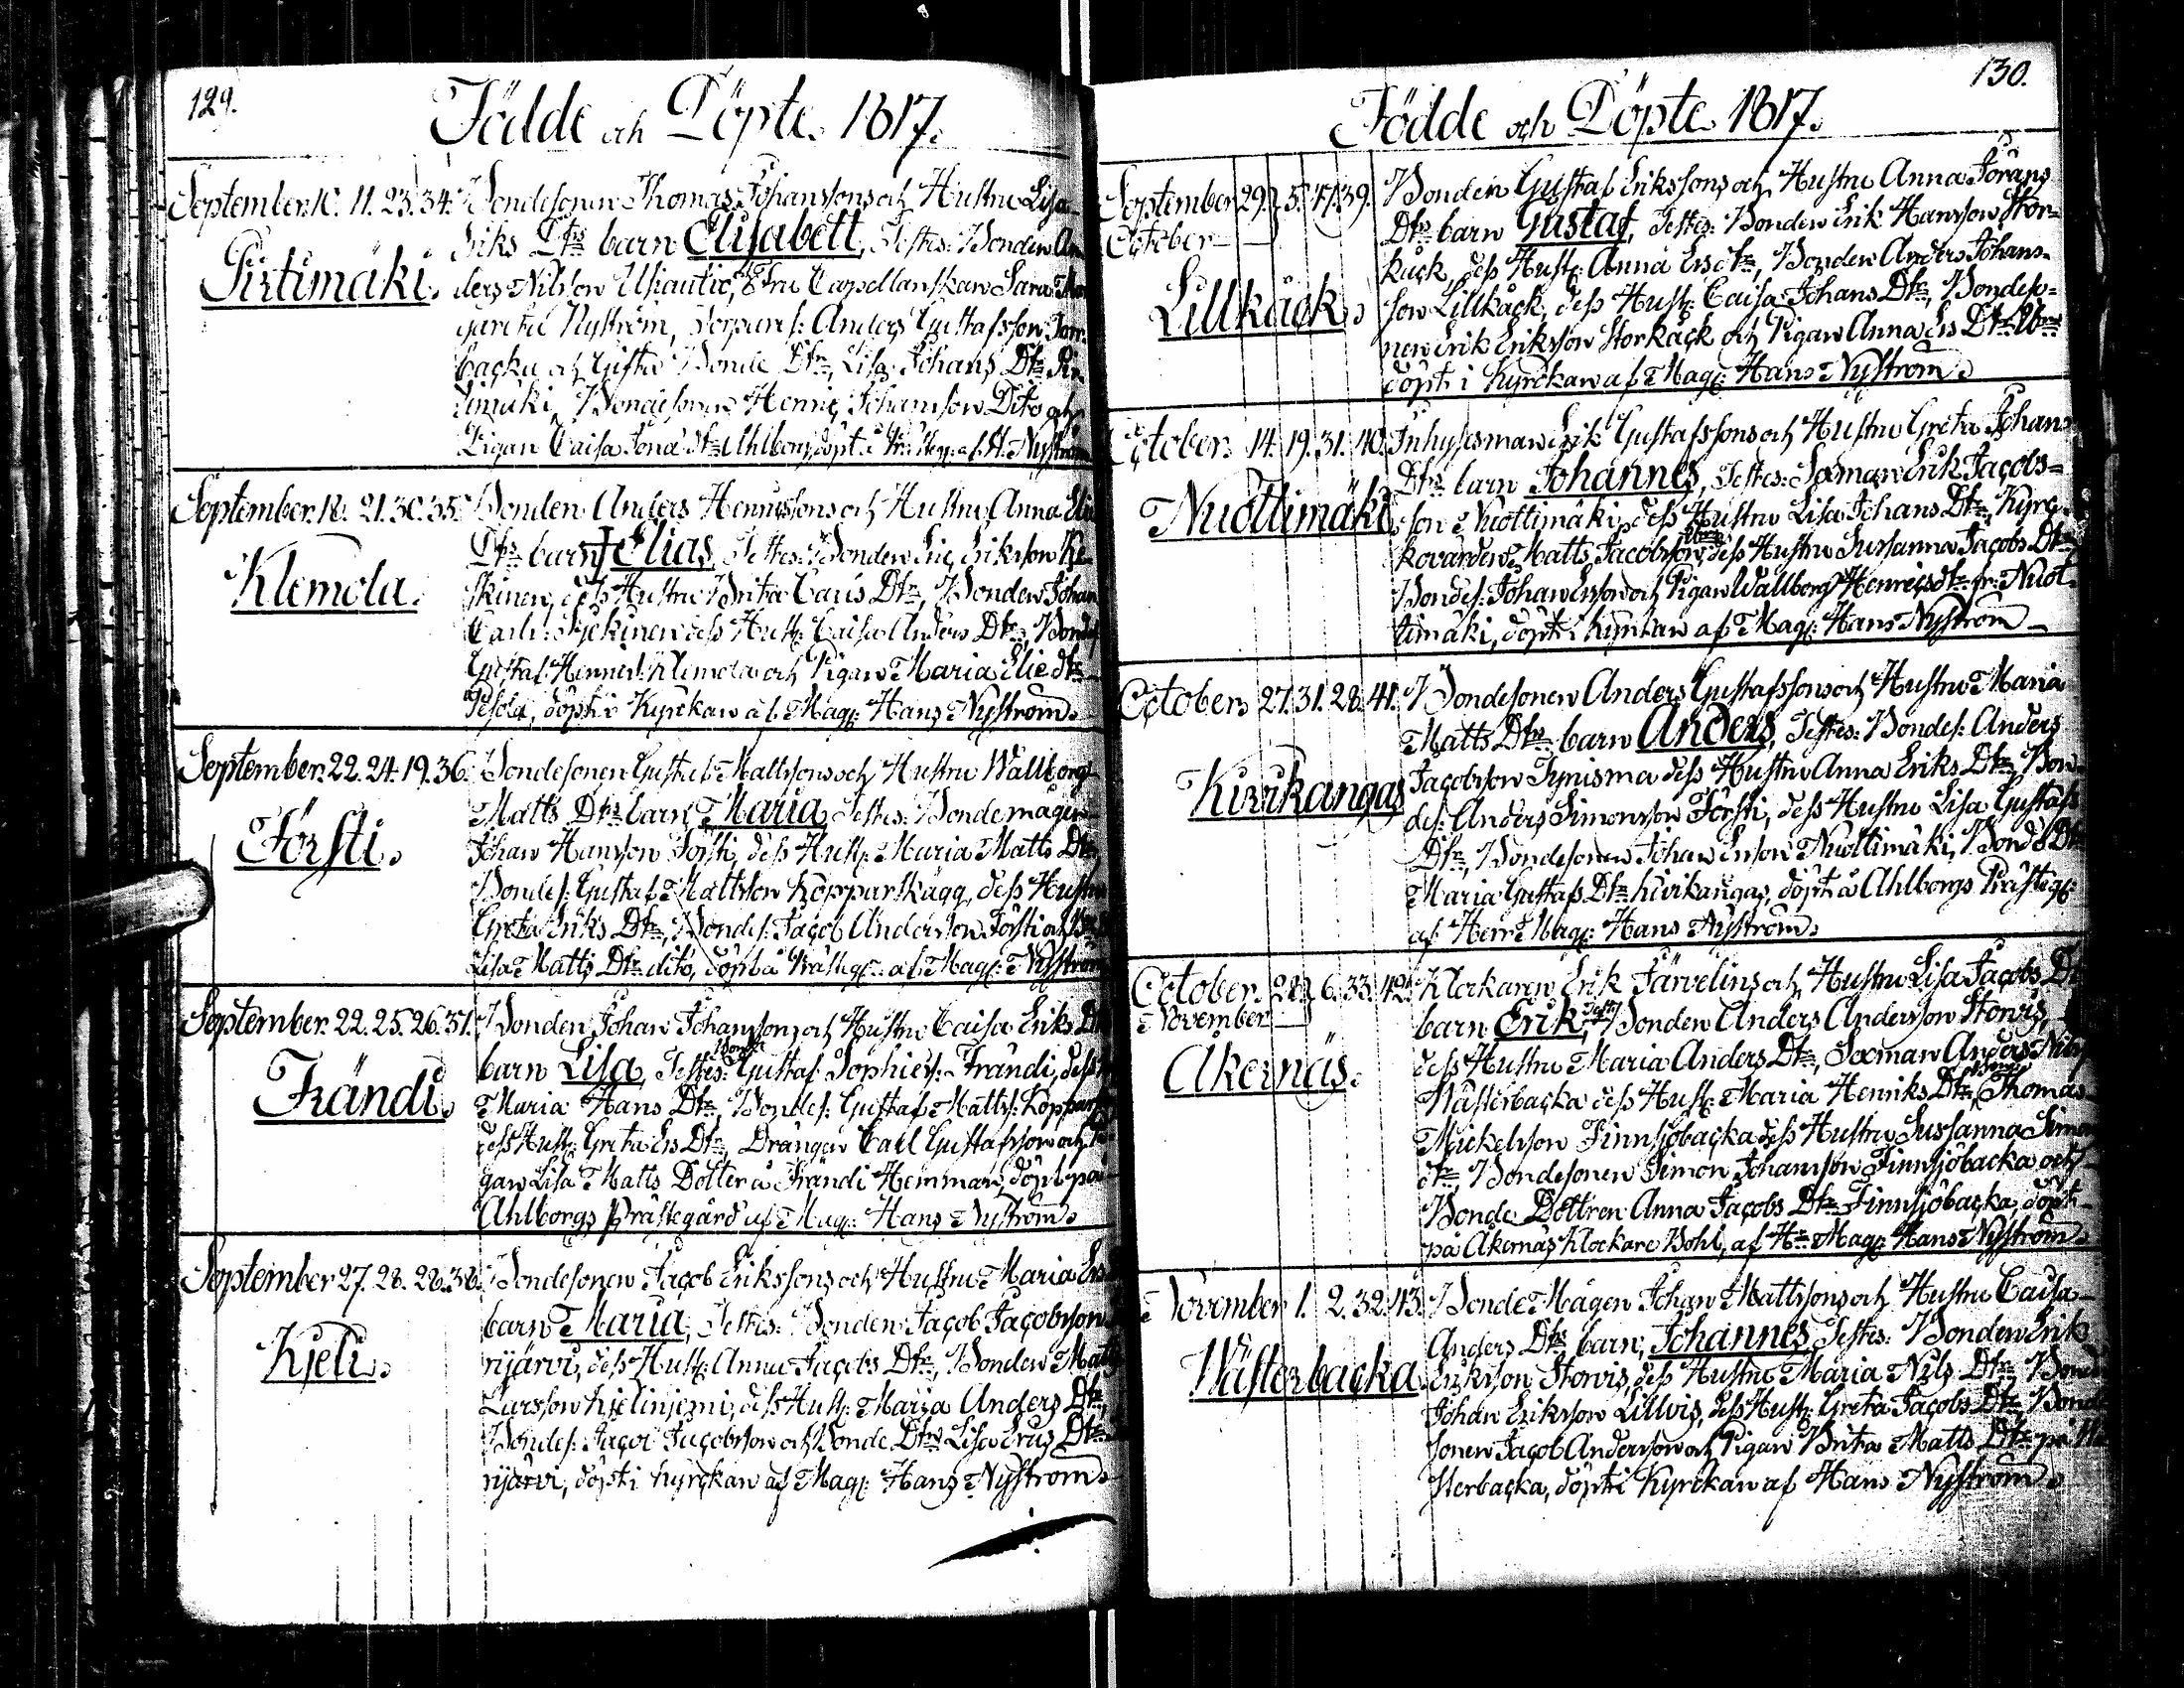 129.
Födde och Döpte 1817.
September. 10. 11. 23. 34. Bondesonen Thomas Johanssons och Hustru Lisa
Eriks Dtrs barn Elisabett, Testes: Bonden An
Pirtimäki. ders Nilsson Fru Capellanskan Sara Mar
gareta Nyström, Anders Gustafsson Torr
backa och Gifta Bonde Dtr Lisa Johans Dtr Pir
timäki, Bondesonen Johansson Dito och
Pigan Caisa Jona dtr Ahlborg, döpt af H. Nyström
September. 18. 21. 30. 35. Bonden Anders Henrikssons och Hustru Anna Elie
Dtrs barn Elias, Testes: Bonden Eric Eriksson Ke
Klemola. skinen, dess Hustru Brita Caris Dtr, Bonden Johan
Carls: dess Hust: Caisa Anders Dtr, Bondes:
Gustaf Henriks: Klemola och Pigan Maria Elie dtr
döpt i Kyrckan af Mag: Hans Nyström.
September. 22. 24. 19. 36. Bondesonen Gustaf Mattssons och Hustru Wallborg
Matts Dtrs barn Maria, Testes: Bondemågen
Försti. Johan Hansson Försti, dess Hust: Maria Matts Dtr
Bondes: Gustaf Mattsson Kopparskägg, dess Hustru
Greta Eriks Dtr, Bondes: Jacob Andersson Försti och
Lisa Matts Dtr dito, döpt å Prästeg: af Mag: Nyström
September. 22. 25. 26. 37. Bonden Johan Johanssons och Hustru Caisa Eriks Dtrs
barn Lisa, Testes: Bonden Gustaf Sophies: Frändi, dess
Frändi. Maria Hans Dtr, Bondes: Gustaf Matts: Koppar
dess Hust: Greta Ers Dtr, Drängen Carl Gustafsson och Pi
gan Lisa Matts Dotter å Frändi Hemman, döpt på
Ahlborgs Prästegård af Mag: Hans Nyström.
September 27. 28. 28. 38. Bondesonen Jacob Erikssons och Hustru Maria Ers
barn Maria, Testes: Bonden Jacob Jacobsson
Kjeli. rijärvi, dess Hust: Anna Jacobs Dtr, Bonden Matts
Larsson Kjelinjemi, dess Hust: Maria Anders Dtr,
Bondes: Jacob Jacobsson och Bonde Dtr Lisa Dtr
rijärvi, döpt i Kyrckan af Mag: Hans Nyström.
130.
Födde och Döpte 1817.
September 29. 5. 47. 39. Bonden Gustaf Erikssons och Hustru Anna Jörans
October Dtrs barn Gustaf, Testes: Bonden Erik Hansson Stor=
kåck, dess Hust: Anna Ers dtr, Bonden Anders Johans=
Lillkåck. son Lillkåck, dess Hust: Caisa Johans Dtr, Bondeso=
nen Erik Eriksson Storkåck och Pigan Anna Ers Dtr
döpt i Kyrckan af Mag: Hans Nyström.
October. 14. 19. 31. 40. Inhysesman Erik Gustafssons och Hustru Greta Johans
Dtrs barn Johannes, Testes: Sexman Erik Jacobs=
Nuottimäki son Nuottimäki, dess Hustru Lisa Johans Dtr, Kyrc
kovärden Matts Jacobsson, dess Hustru Sussanna Jacobs Dtr
Bondes: Johan Ersson och Pigan Wallborg Henrics dtr fr: Nuot
timäki, döpt i Kyrckan af Mag: Hans Nyström
October. 27. 31. 28. 41. Bondesonen Anders Gustafssons och Hustru Maria
Matts Dtrs barn Anders, Testes: Bondes: Anders
Kivikangas Jacobsson Tynisma dess Hustru Anna Eriks Dtr, Bon
des: Anders Simonsson Försti, dess Hustru Lisa Gustafs
Dtr, Bondesonen Johan Ersson Nuottimäki, Bonde Dtr
Maria Gustafs Dtr Kivikangas, döpt å Ahlborgs Prästeg:
af Herr Mag: Hans Nyström.
October. 28. 6. 33. 42. Klockaren Erik Järvelins och Hustru Lisa Jacobs Dtrs
November barn Erik, Testes: Bonden Anders Andersson Storvis,
dess Hustru Maria Anders Dtr, Sexman Anders Nils
Åkernäs. Wästerbacka dess Hust: Maria Henriks Dtr, Bonden Thomas
Mickelsson Finnsjöbacka dess Hustru Sussanna Simons
dtr, Bondesonen Simon Johansson Finnsjöbacka och
Bonde Dottren Anna Jacobs Dtr Finnsjöbacka, döpt
på Åkernäs Klockare Bohl, af Hr Mag: Hans Nyström.
November 1. 2. 32. 43. Bonde Mågen Johan Mattssons och Hustru Caisa
Anders Dtrs barn, Johannes, Testes: Bonden Erik
Wästerbacka Eriksson Storvis, dess Hustru Maria Nils Dtr, Bonden
Johan Eriksson Lillvis, dess Hust: Greta Jacobs Dtr, Bonde
sonen Jacob Andersson och Pigan Brita Matts Dtr på Wä
sterbacka, döpt i Kyrckan af Hans Nyström.